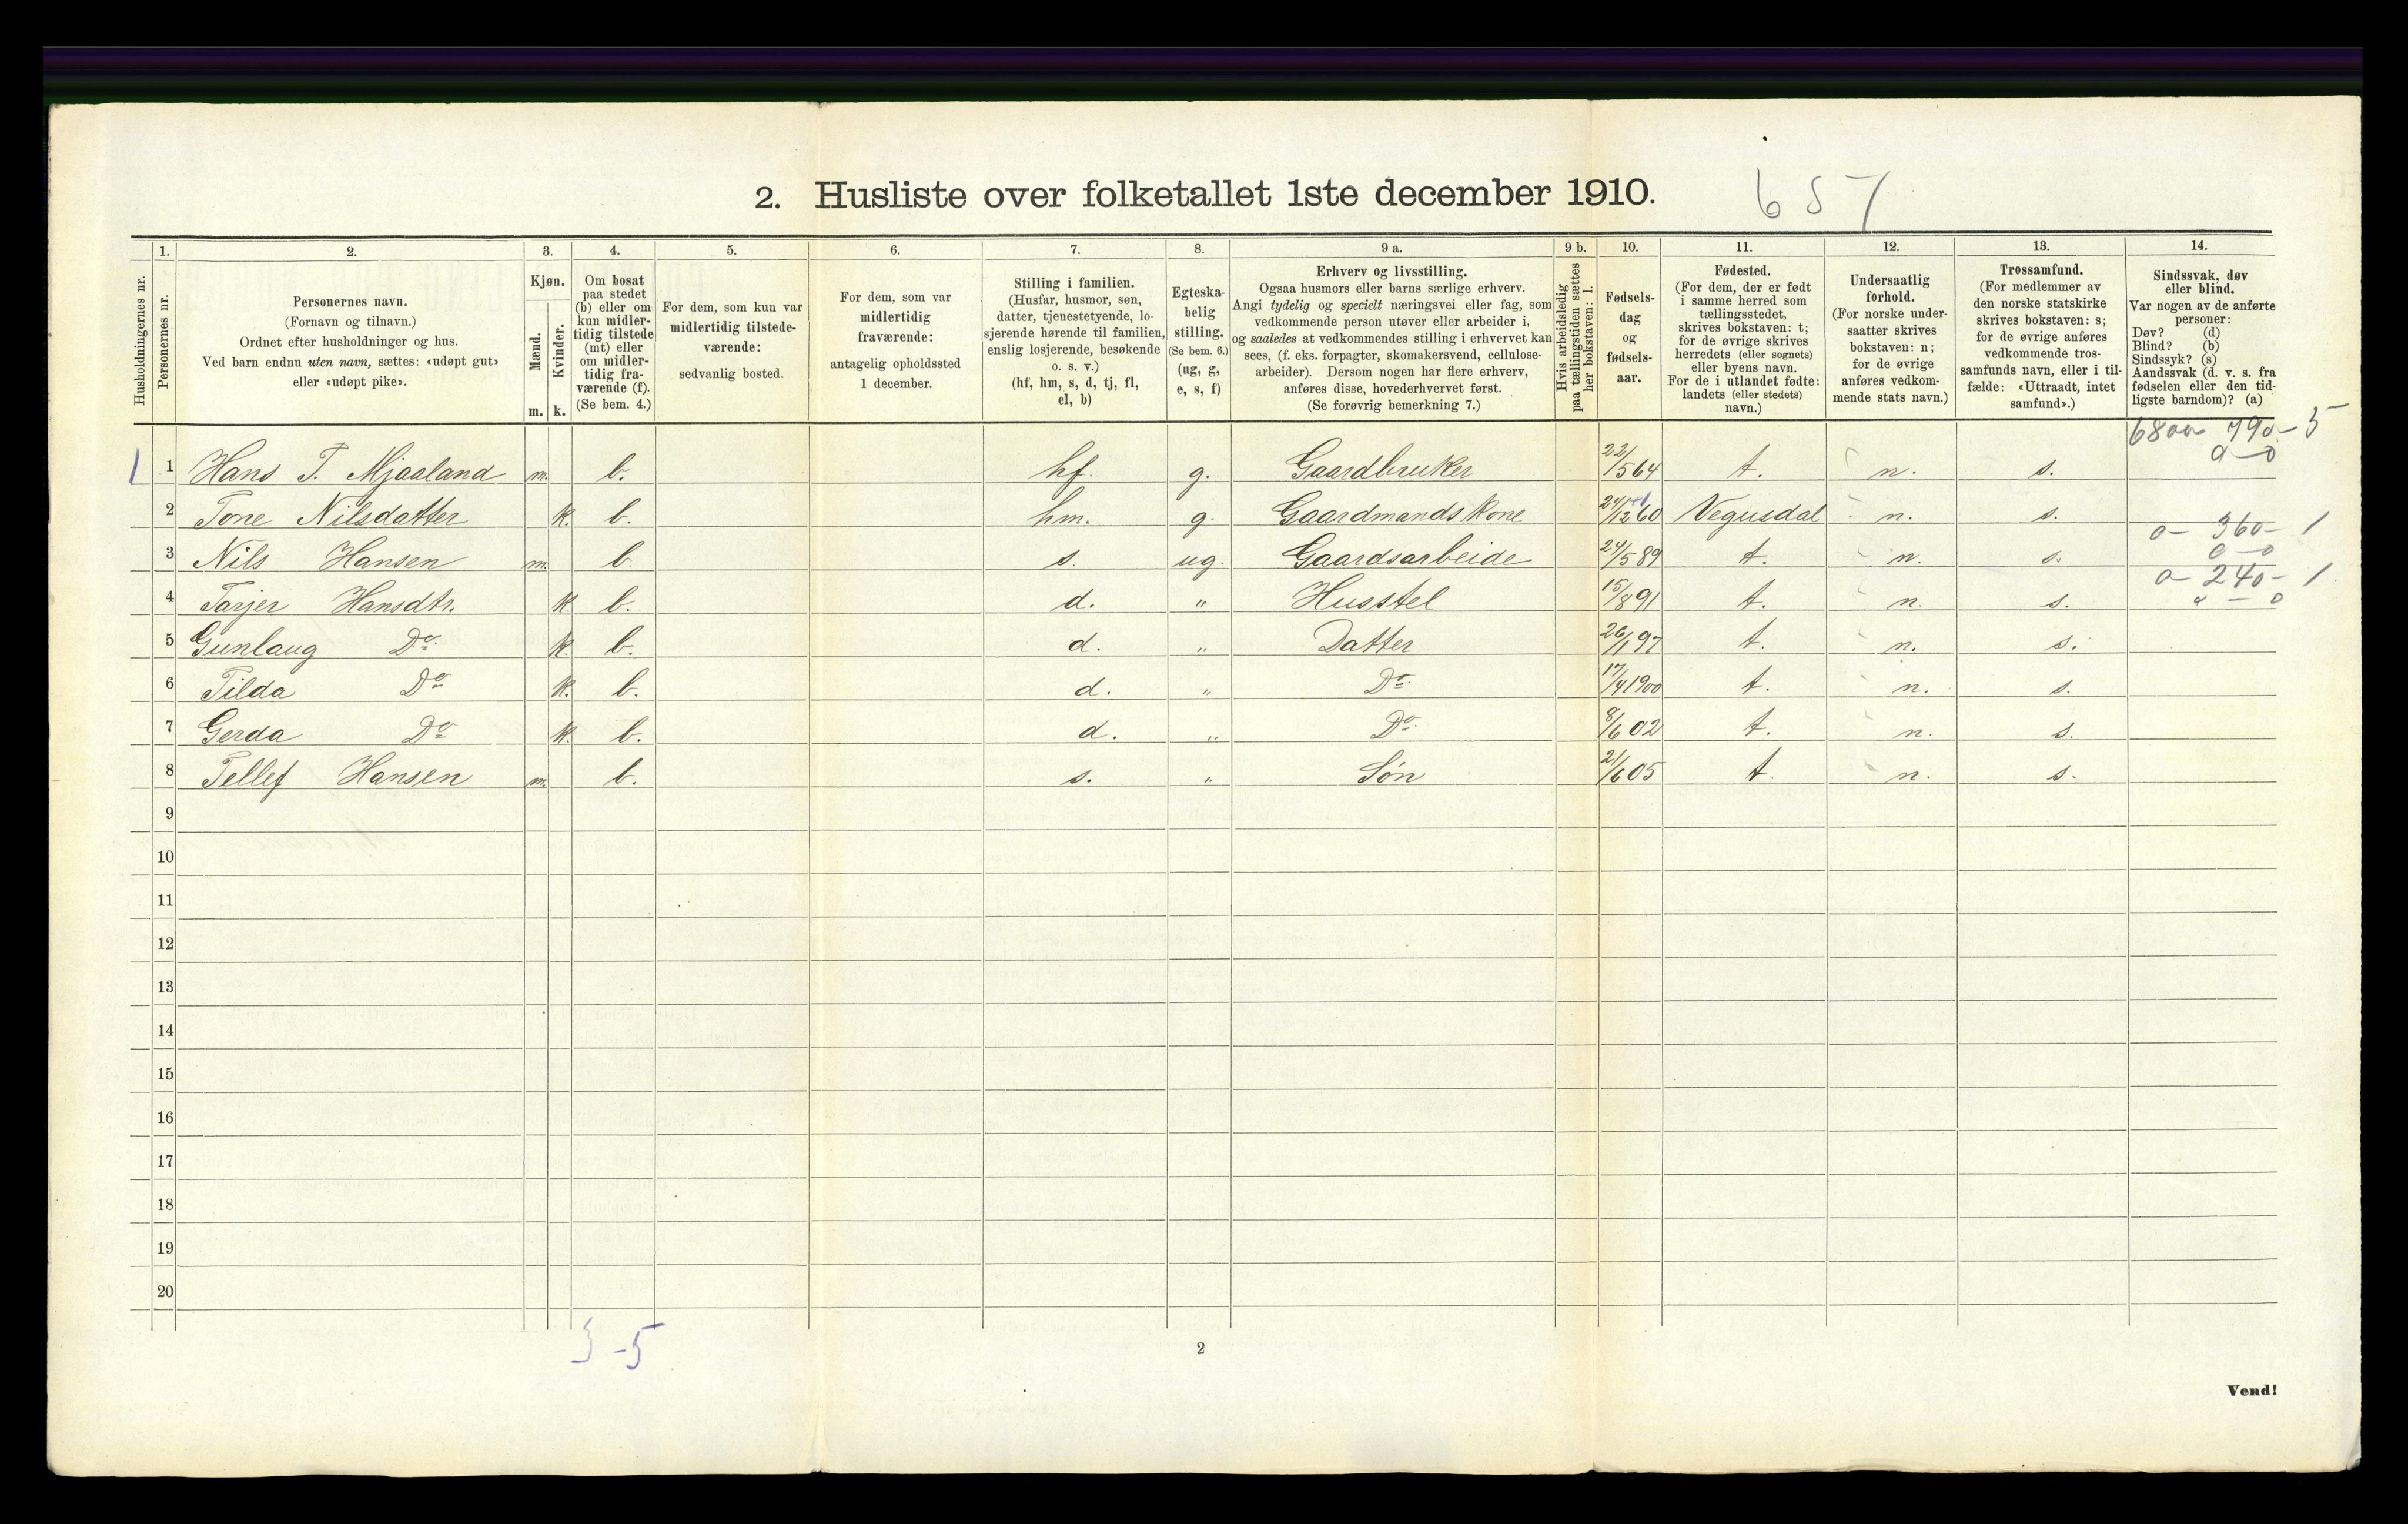 2. Husliste over folketallet 1ste december 1910. 657
Husholdningernes nr.
1.
Personernes nr.
2.
Personernes navn.
(Fornavn og tilnavn.)
Ordnet efter husholdninger og hus.
Ved barn endnu uten navn, sættes: «udøpt gut»
eller «udøpt pike».
3.
Kjøn.
Mænd.
Kvinder.
m. k.
4.
Om bosat
paa stedet
(b) eller om
kun midler-
tidig tilstede
(mt) eller
om midler-
tidig fra-
værende (f).
(Se bem. 4.)
5.
For dem, som kun var
midlertidig tilstede-
værende:
sedvanlig bosted.
6.
For dem, som var
midlertidig
fraværende:
antagelig opholdssted
1 december.
7.
Stilling i familien.
(Husfar, husmor, søn,
datter, tjenestetyende, lo-
sjerende hørende til familien,
enslig losjerende, besøkende
o. s. v.)
(hf, hm, s, d, tj, fl,
el, b)
8.
Egteska-
belig
stilling.
(Se bem. 6.)
(ug, g,
e, s, f)
9 a.
Erhverv og livsstilling.
Ogsaa husmors eller barns særlige erhverv.
Angi tydelig og specielt næringsvei eller fag, som
vedkommende person utøver eller arbeider i,
og saaledes at vedkommendes stilling i erhvervet kan
sees, (f. eks. forpagter, skomakersvend, cellulose-
arbeider). Dersom nogen har flere erhverv,
anføres disse, hovederhvervet først.
(Se forøvrig bemerkning 7.)
9 b.
Hvis arbeidsledig
paa tællingstiden sættes
her bokstaven: l.
10.
Fødsels-
dag
og
fødsels-
aar.
11.
Fødested.
(For dem, der er født
i samme herred som
tællingsstedet,
skrives bokstaven: t;
for de øvrige skrives
herredets (eller sognets)
eller byens navn.
For de i utlandet fødte:
landets (eller stedets)
navn.)
12.
Undersaatlig
forhold.
(For norske under-
saatter skrives
bokstaven: n;
for de øvrige
anføres vedkom-
mende stats navn.)
13.
Trossamfund.
(For medlemmer av
den norske statskirke
skrives bokstaven: s;
for de øvrige anføres
vedkommende tros-
samfunds navn, eller i til-
fælde: «Uttraadt, intet
samfund».)
14.
Sindssvak, døv
eller blind.
Var nogen av de anførte
personer:
Døv? (d)
Blind? (b)
Sindssyk? (s)
Aandssvak (d. v. s. fra
fødselen eller den tid-
ligste barndom)? (a)
1 1 Hans T. Mjaaland m. b. hf. g. Gaardbruker 22/5 64 t. n. s.
2 Tone Nilsdatter k. b. hm. g. Gaardmands Kone 24/12 60 Vegusdal n. s.
3 Nils Hansen m. b. s. ug. Gaardsarbeide 24/5 89 t. n. s. 0- 360- 1
4 Tarjer Hansdtr. k. b. d. " Husstel 15/8 91 t. n. s. 0- 240- 1
5 Gunlaug Do. k. b. d. " Datter 26/1 97 t. n. s.
6 Tilda Do k. b. d. " Do. 17/4 1900 t. n. s.
7 Gerda Do k. b. d. " Do. 8/6 02 t. n. s.
8 Tellef Hansen m. b. s. " Søn 21/6 05 t. n. s.
9
10
11
12
13
14
15
16
17
18
19
20
3-5
2
Vend!